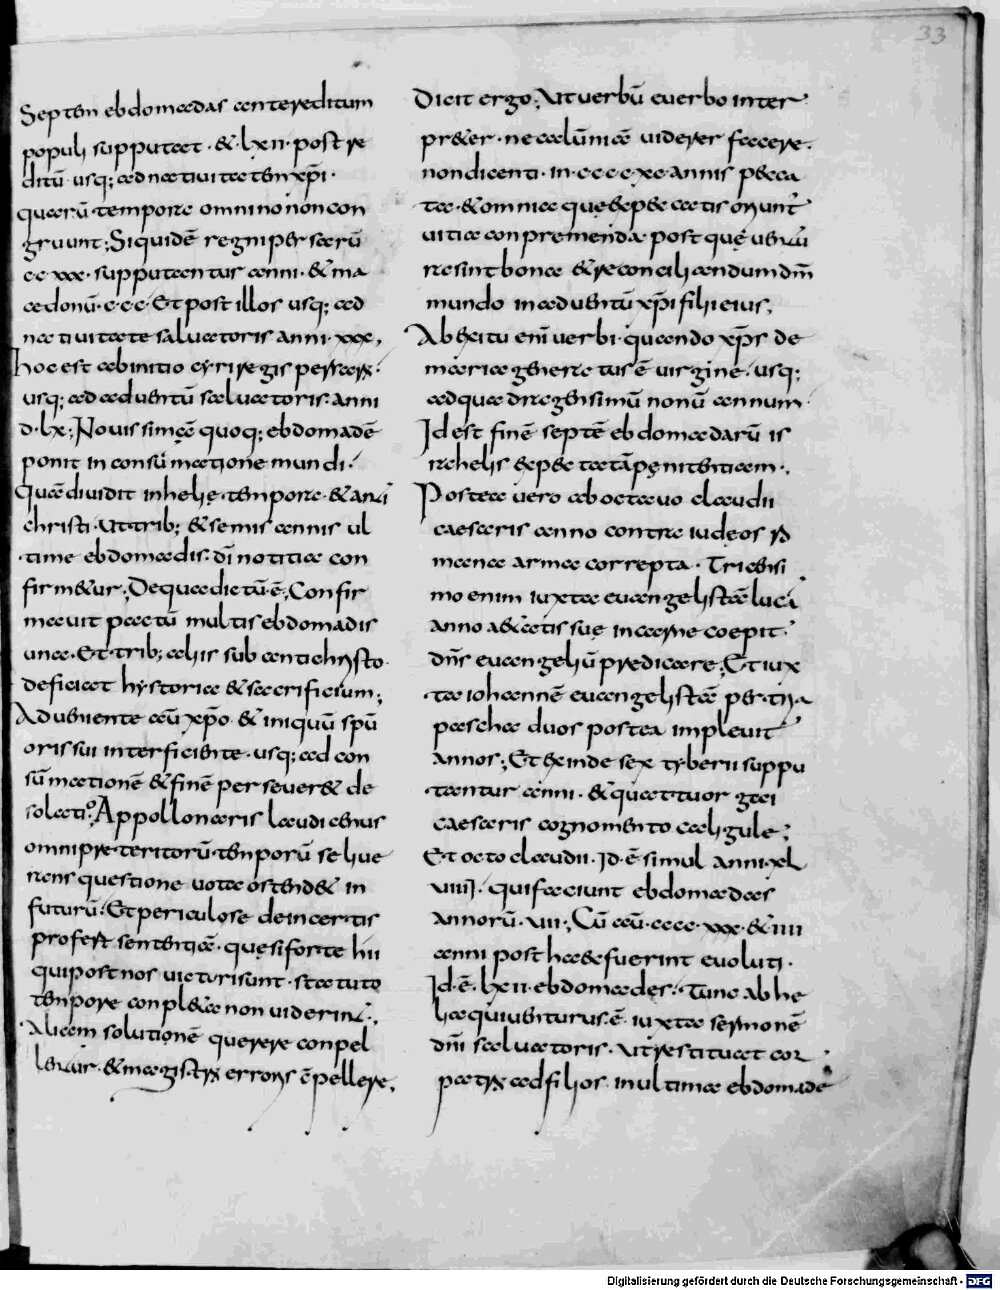 33
Septem ebdomadas ante reditum
populi supputat · & lxii · post re
ditū usq; ad natiuitatem xp̄i ·
quarū tempora omnino non con
gruunt; Siquidē regni persarū
ccxxx · supputantur anni · & ma
cedonū · ccc · Et post illos usq; ad
natiuitate saluatoris anni · xxx,
hoc est ab initio cyri regis persarum ·
usq; ad aduentū saluatoris · anni
d · lx; Nouissimā quoq; ebdomadē
ponit in consūmatione mundi ·
Quā diuidit in helię tempora · & anti
christi · ut trib; & semis annis ul
time ebdomadis · dī notitia con
firmetur; De qua dictū · ē; Confir
mauit pactū multis ebdomadis
una · Et trib; aliis sub antichristo
deficiat hystoria & sacrificium;
Adueniente aū xp̄o & iniquū spū
oris sui interficiente · usq; ad con
sūmationē & finē perseueret de
solatio; Appollonaris laudicenus
omni preteritorū temporū se libe
rans questione uota ostendet in
futurū · Et periculose de incertis
profert sententiā · quę si forte hii
qui post nos uicturi sunt · statuto
tempore conpleta non uiderint ·,
Aliam solutionē querere conpel
lentur · & magistrum erroris ēpellere,
Dicit ergo; Ut uerbū e uerbo inter
preter · ne calūniā uiderer facere ·
non dicenti · in ccccxc annis pecca
ta · & omnia quę de peccatis oriunt̄
uitia conpremenda · post quę uentu
ra sint bona & reconciliandum dm̄
mundo in aduentū xp̄i filii eius,
Ab exitu enī uerbi · quando xp̄s de
maria generatus ē uirgine · usq;
ad quadragensimū nonū annum ·
Id est finē septē ebdomadarū is
rahelis expectatā penitentiam ·,
Postea uero ab octauo claudii
caesaris anno contra iudeos ro
mana arma correpta · Tricensi
mo enim iuxta euangelistā lucā
anno aetatis suę in carne coepit
dn̄s euangeliū predicare; Et iux
ta iohannē euangelistā per tria
pascha duos postea impleuit
annos; Et exinde sex tyberii suppu
tantur anni · & quattuor gaii
caesaris cognomento caligule;
Et octo claudii · Id · ē simul anni xl
uiiii · qui faciunt ebdomadas
annorū · uii; Cū aū · cccc · xxx · & iiii
anni post haec fuerint euoluti ·
Id · ē · lxii · ebdomades · Tunc ab he
lia qui uenturus · ē · iuxta sermonē
dn̄i saluatoris · ut restituat cor
patrum ad filios · in ultima ebdomade
Digitalisierung gefördert durch die Deutsche Forschungsgemeinschaft · DFG